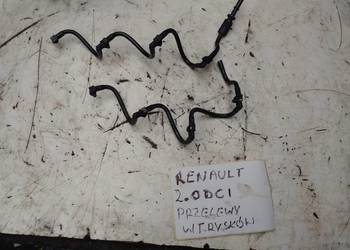 RENAULT
2.0DCI
PRZELEWY
WTRYSKÓW